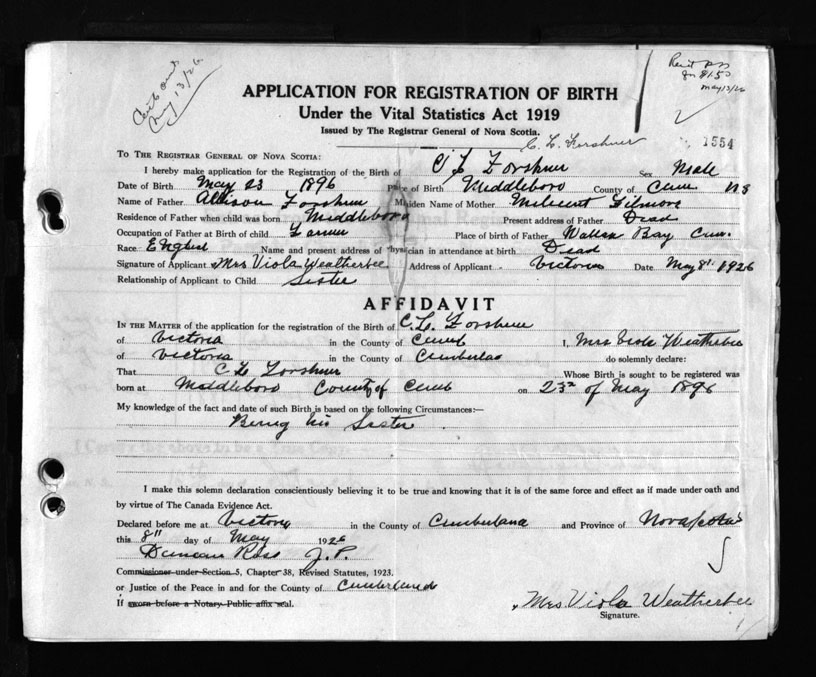 Cert sent
May 13/26
Rec'd
May 13/26
APPLICATION FOR REGISTRATION OF BIRTH
Under the Vital Statistics Act 1919
Issued by The Registrar General of Nova Scotia.
C. L. Forshner
1554
To THE REGISTRAR GENERAL OF NOVA SCOTIA:
I hereby make application for the Registration of the Birth of C L Forshner Sex Male
Date of Birth May 23 1896 Place of Birth Middleboro County of Cum N S
Name of Father Allison Forshner Maiden Name of Mother Milicent Filmore
Residence of Father when child was born Middleboro Present address of Father Dead
Occupation of Father at Birth of child Farmer Place of birth of Father Wallace Bay Cum.
Race English Name and present address of Physician in attendance at birth Dead
Signature of Applicant Mrs Viola Weatherbee Address of Applicant Victoria Date May 8" 1926
Relationship of Applicant to Child Sister
AFFIDAVIT
IN THE MATTER of the application for the registration of the Birth of C. L. Forshner
of Victoria in the County of Cumb I, Mrs Viola Weatherbee
of Victoria in the County of Cumberland do solemnly declare:
That C L Forshner Whose Birth is sought to be registered was
born at Middleboro County of Cumb on 23rd of May 1896
My knowledge of the fact and date of such Birth is based on the following Circumstances:—
Being his Sister
I make this solemn declaration conscientiously believing it to be true and knowing that it is of the same force and effect as if made under oath and
by virtue of The Canada Evidence Act.
Declared before me at Victoria in the County of Cumberland and Province of Nova Scotia
this 8" day of May 1926
Duncan Ross J.P.
Commissioner under Section 5, Chapter 38, Revised Statutes, 1923.
or Justice of the Peace in and for the County of Cumberland
If sworn before a Notary Public affix seal.
Mrs Viola Weatherbee
Signature.